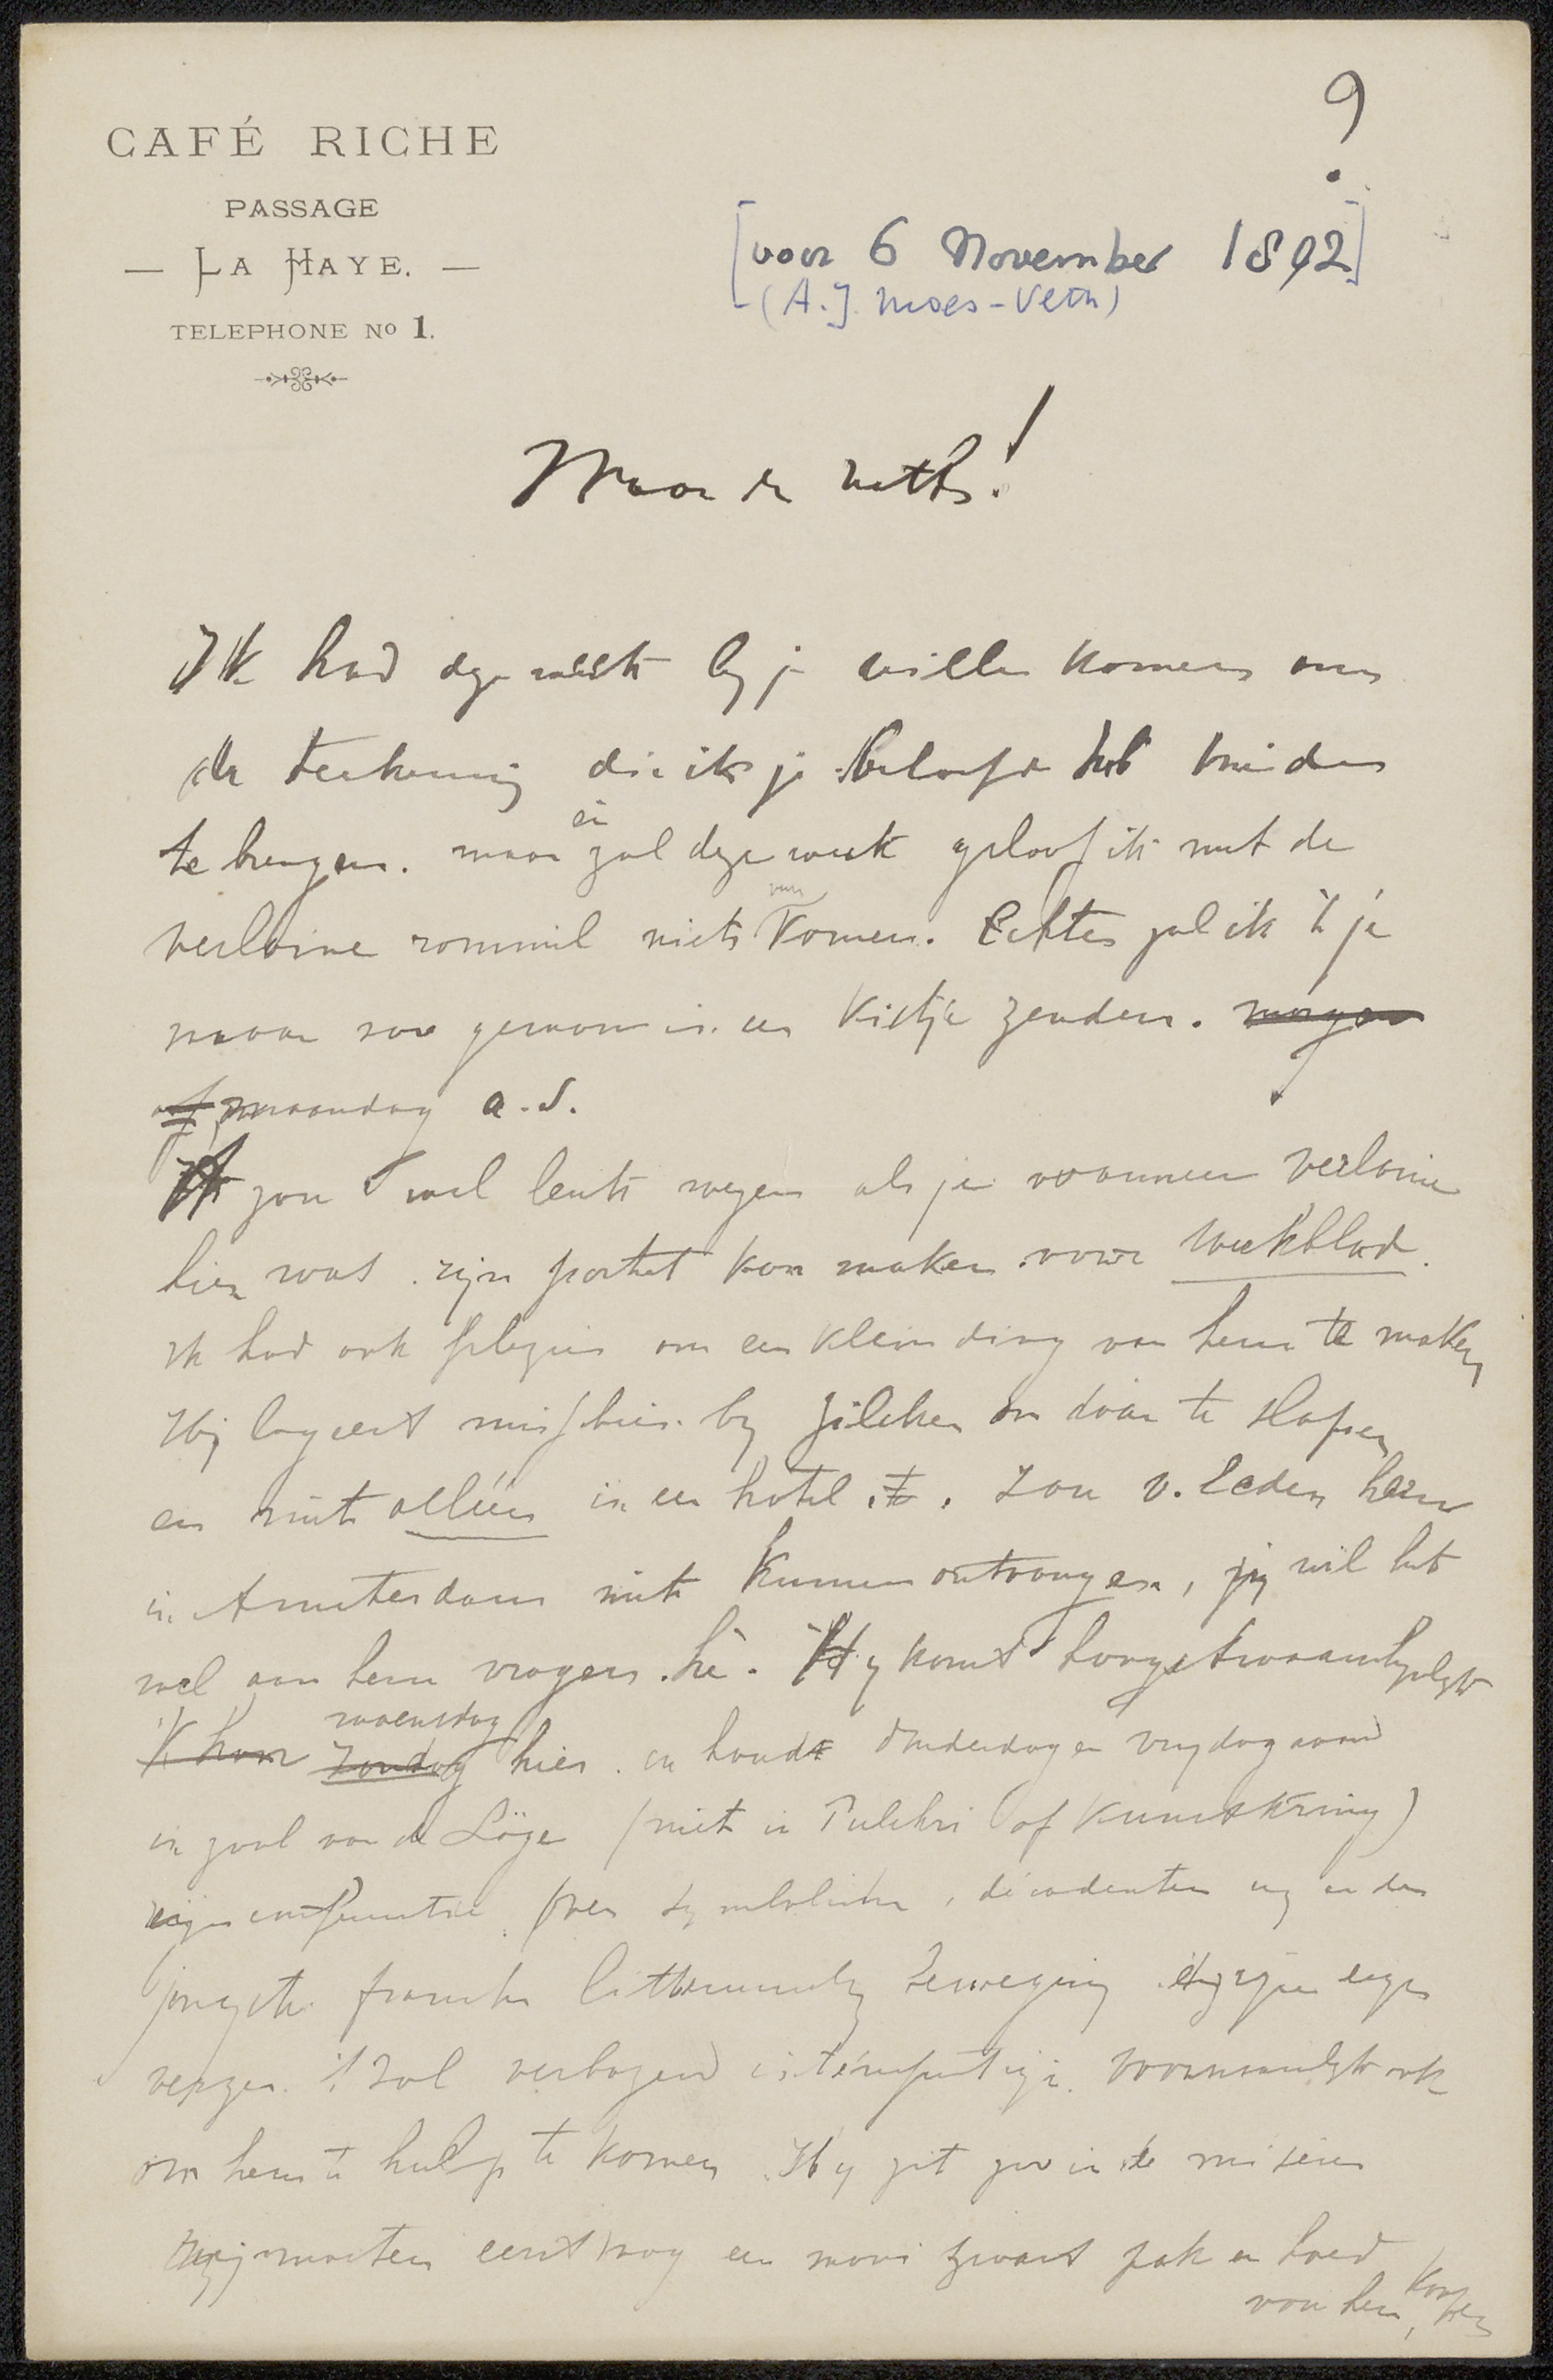 CAFÉ RICHE
PASSAGE
— LA HAYE. —
TELEPHONE No 1.
?
[voor 6 November 1892]
(A.J. Moes-Veth)
Waarde Veth!
Ik had deze week by je willen komen om
de teekening die ik je beloofd heb
te brengen. maar er zal deze week geloof ik met de
Verlaine rommel niets van komen. Echter zal ik 't je
maar zoo gewoon in een kistje zenden. morgen
of maandag a.s.
Ik zou 't wel leuk vinden als je wanneer Verlaine
hier was zijn portret kon maken voor Weekblad.
Ik had ook plezier om een klein ding van hem te maken
Hij logeert misschien by Zilcken om daar te slapen
en niet alleen in een hotel. Zou v. Eeden hem
in Amsterdam niet kunnen ontvangen, jij wil het
wel aan hem vragen hè. Hij komt hoogstwaarschynlyk
woensdag
Zondag hier en houdt donderdag en vrydag avond
in zaal van de Loge (niet in Pulchri of Kunstkring)
zijn conferentie over symbolisten, décadenten en den
jongste fransche litterarische beweging en zijn eigen
verzen. 't Zal verbazend interessant zijn. voornamelyk ook
om hem te hulp te komen. Hy zit zoo in de misère
wij moeten eerst nog een mooi zwart pak en hoed
voor hem koopen